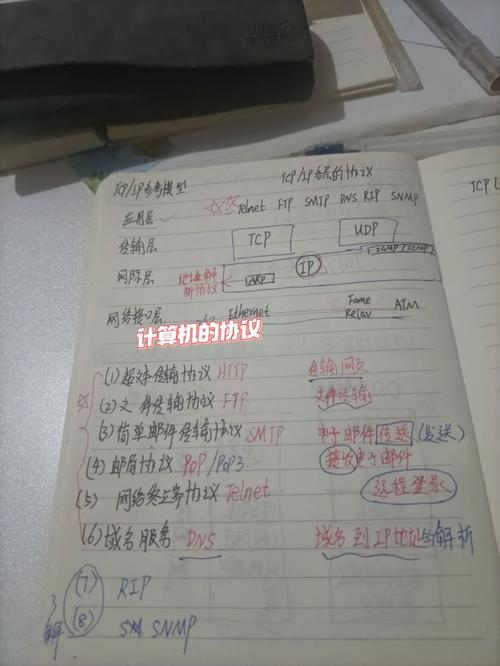 TCP/IP参考模型 TCP/IP各层的协议
应用层 Telnet FTP SMTP DNS RIP SNMP
传输层 TCP UDP
IGMP ICMP
网际层 地址解析协议 ARP IP
网络接口层 Ethernet Fame Relay ATM
计算机的协议
(1) 超文本传输协议 HTTP 传输网页
(2) 文件传输协议 FTP 文件传输
(3) 简单邮件传输协议 SMTP 电子邮件传送 (发送)
(4) 邮局协议 POP/POP3 接收电子邮件
(5) 网络终端协议 Telnet 远程登录
(6) 域名服务 DNS 域名到IP地址的解析
(7) RIP
3解 (8) SNMP